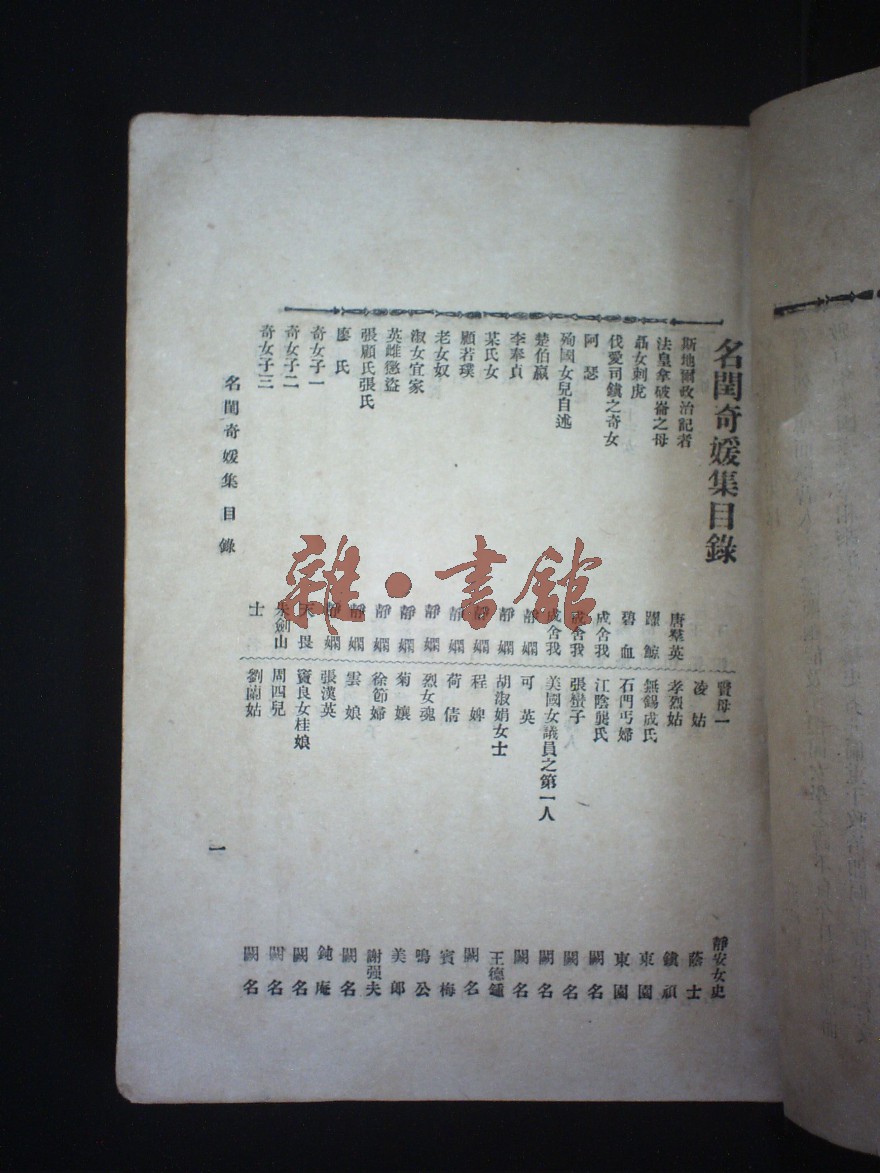 名閨奇媛集目錄
斯地爾政治記者 唐羣英
法皇拿破崙之母 躍鯨
聶女刺虎 碧血
伐愛司鎮之奇女 成舍我
阿瑟 成舍我
殉國女兒自述 成舍我
楚伯嬴 靜嫻
李奉貞 靜嫻
某氏女 靜嫻
顧若璞 靜嫻
老女奴 靜嫻
淑女宜家 靜嫻
英雌懲盜 靜嫻
張顧氏張氏 靜嫻
廖氏 靜嫻
奇女子一 天畏
奇女子二 朱劍山
奇女子三 士
賢母一 靜安女史
凌姑 蔭士
孝烈姑 鎮頑
無錫成氏 東園
石門丐婦 東園
江陰龔氏 闕名
張蠻子 闕名
美國女議員之第一人 闕名
可英 闕名
胡淑娟女士 王德鍾
程婢 闕名
荷倩 賓梅
烈女魂 鳴公
菊孃 美郎
徐節婦 謝强夫
雲娘 闕名
張漢英 鈍庵
竇良女桂娘 闕名
周四兒 闕名
劉蘭姑 闕名
名閨奇媛集 目錄
一
雜·書館